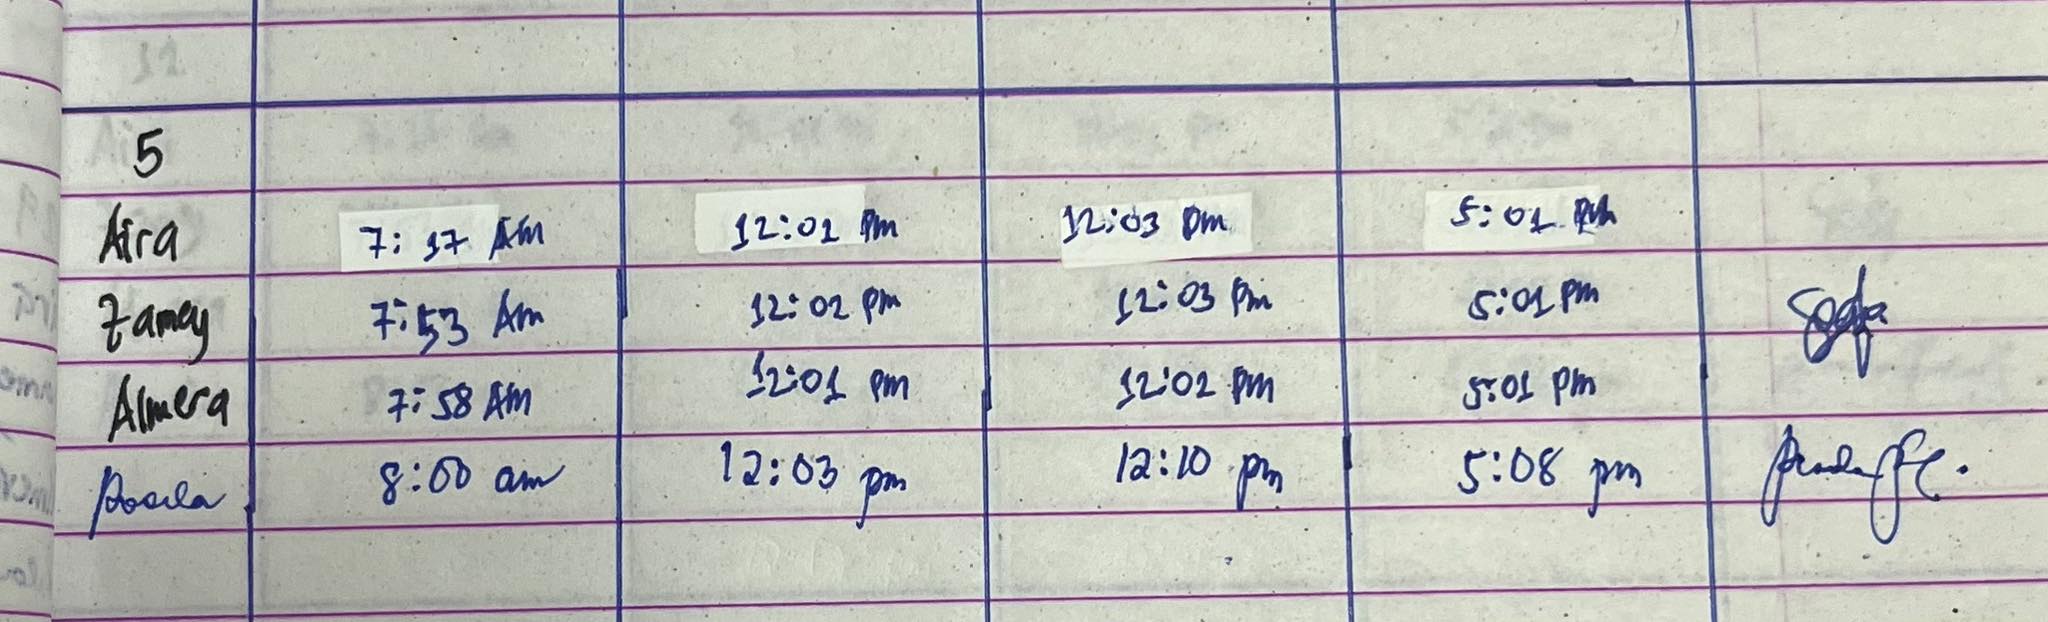 5
Aira 7:17 AM 12:01 PM 12:03 pm 5:01 PM
Zamey 7:53 Am 12:02 pm 12:03 Pm 5:01 PM
Almera 7:58 AM 12:01 pm 12:02 pm 5:01 pm
8:00 am 12:03 pm 12:10 pm 5:08 pm